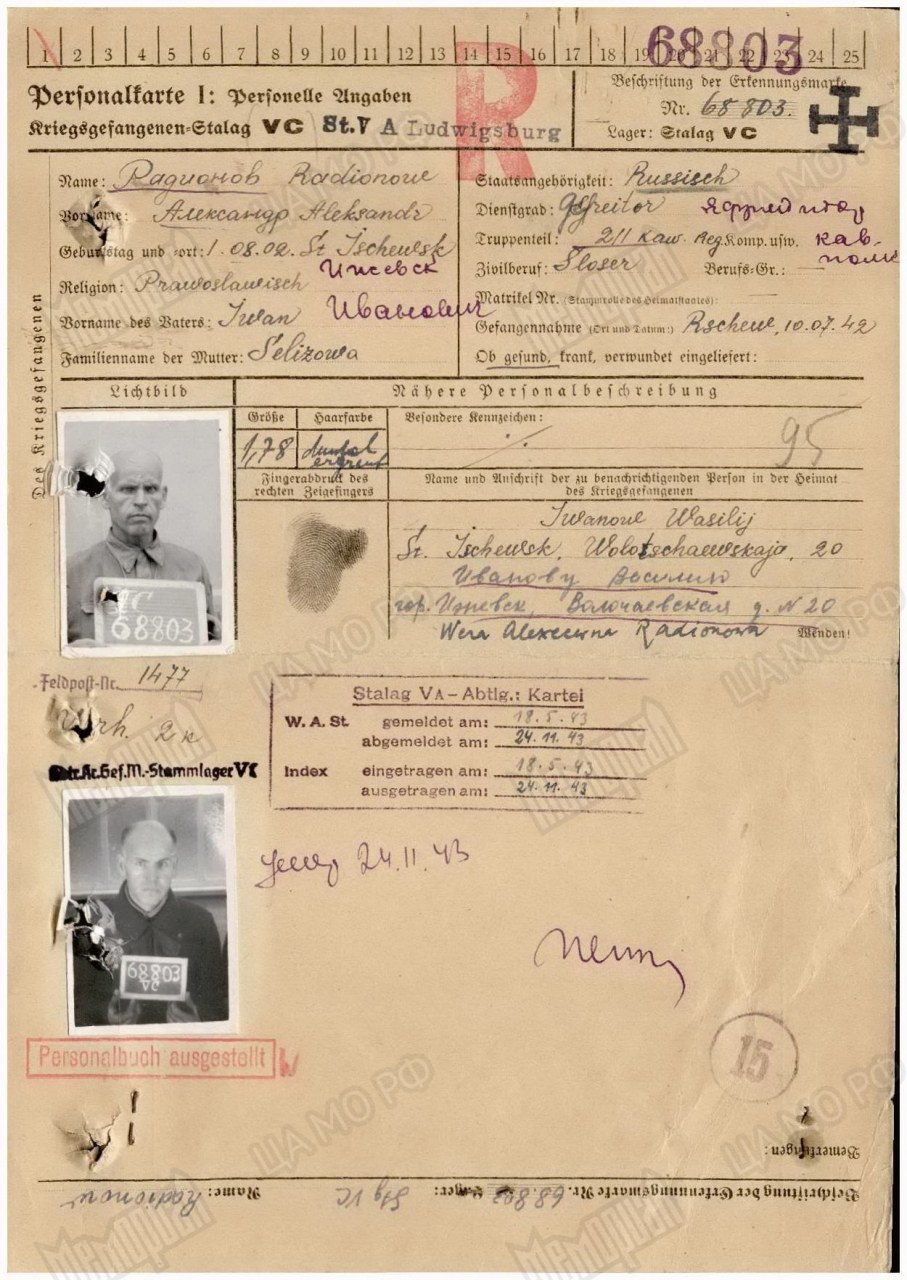 1 2 3 4 5 6 7 8 9 10 11 12 13 14 15 16 17 18 19 20 21 22 23 24 25
68803
R
Personalkarte I: Personelle Angaben
Kriegsgefangenen-Stalag VC St.V A Ludwigsburg
Beschriftung der Erkennungsmarke
Nr. 68803.
Lager: Stalag VC
Des Kriegsgefangenen
Name: Радионов Radionow
Vorname: Александр Aleksandr
Geburtstag und -ort: 1.08.02. St. Ischewsk
Ижевск
Religion: Prawoslawisch
Vorname des Vaters: Iwan Иванович
Familienname der Mutter: Selizowa
Staatsangehörigkeit: Russisch
Dienstgrad: Gefreitor
Truppenteil: 211 Kaw. Reg. Komp. usw. кав-
полк
Zivilberuf: Sloser Berufs-Gr.: —
Matrikel Nr. (Stammrolle des Heimatstaates): —
Gefangennahme (Ort und Datum): Rschew, 10.07.42
Ob gesund, krank, verwundet eingeliefert:
Lichtbild
Nähere Personalbeschreibung
Größe Haarfarbe Besondere Kennzeichen:
1,78 dunkel
95
Fingerabdruck des
rechten Zeigefingers
Name und Anschrift der zu benachrichtigenden Person in der Heimat
des Kriegsgefangenen
Iwanow Wasilij
St. Ischewsk, Wolotschaewskaja, 20
Иванову Василию
гор. Ижевск, Волочаевская д. N 20
Wera Alexeewna Radionowa
Wenden!
VC
68803
Feldpost-Nr. 1477
2k
Kr.Gef.M.-Stammlager VC
Stalag VA – Abtlg.: Kartei
W.A.St gemeldet am: 18.5.43
abgemeldet am: 24.11.43
Index eingetragen am: 18.5.43
ausgetragen am: 24.11.43
68803
VC
24.11.43
Personalbuch ausgestellt
15
Bemerkungen:
Beschriftung der Erkennungsmarke Nr. 68803 Lager: Stlg VC Name: Radionow
Мемориал
ЦА МО РФ